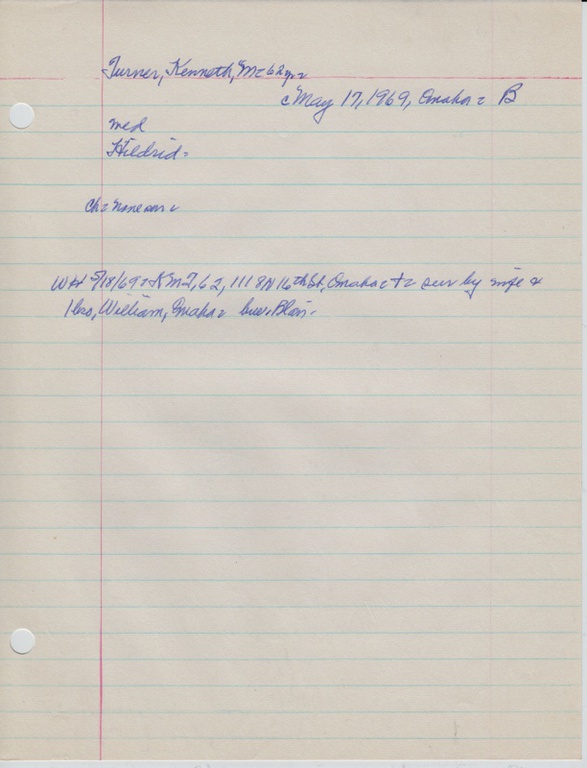 Turner, Kenneth, M= 62 yr =
c May 17, 1969, Omaha = B
med
Hildrid =
Ch = none sur =
WH 5/18/69 = KMT, 62, 1118 N 16th St, Omaha = + = surv by wife &
1 bro, William, Omaha = bur. Blair.